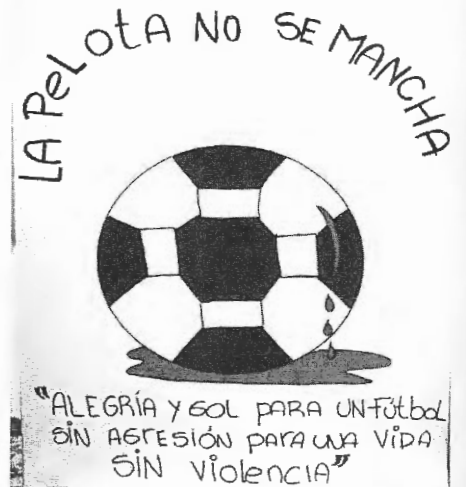 LA PELOTA NO SE MANCHA
"ALEGRÍA Y GOL PARA UN FÚTBOL
SIN AGRESIÓN PARA UNA VIDA
SIN VIOLENCIA"